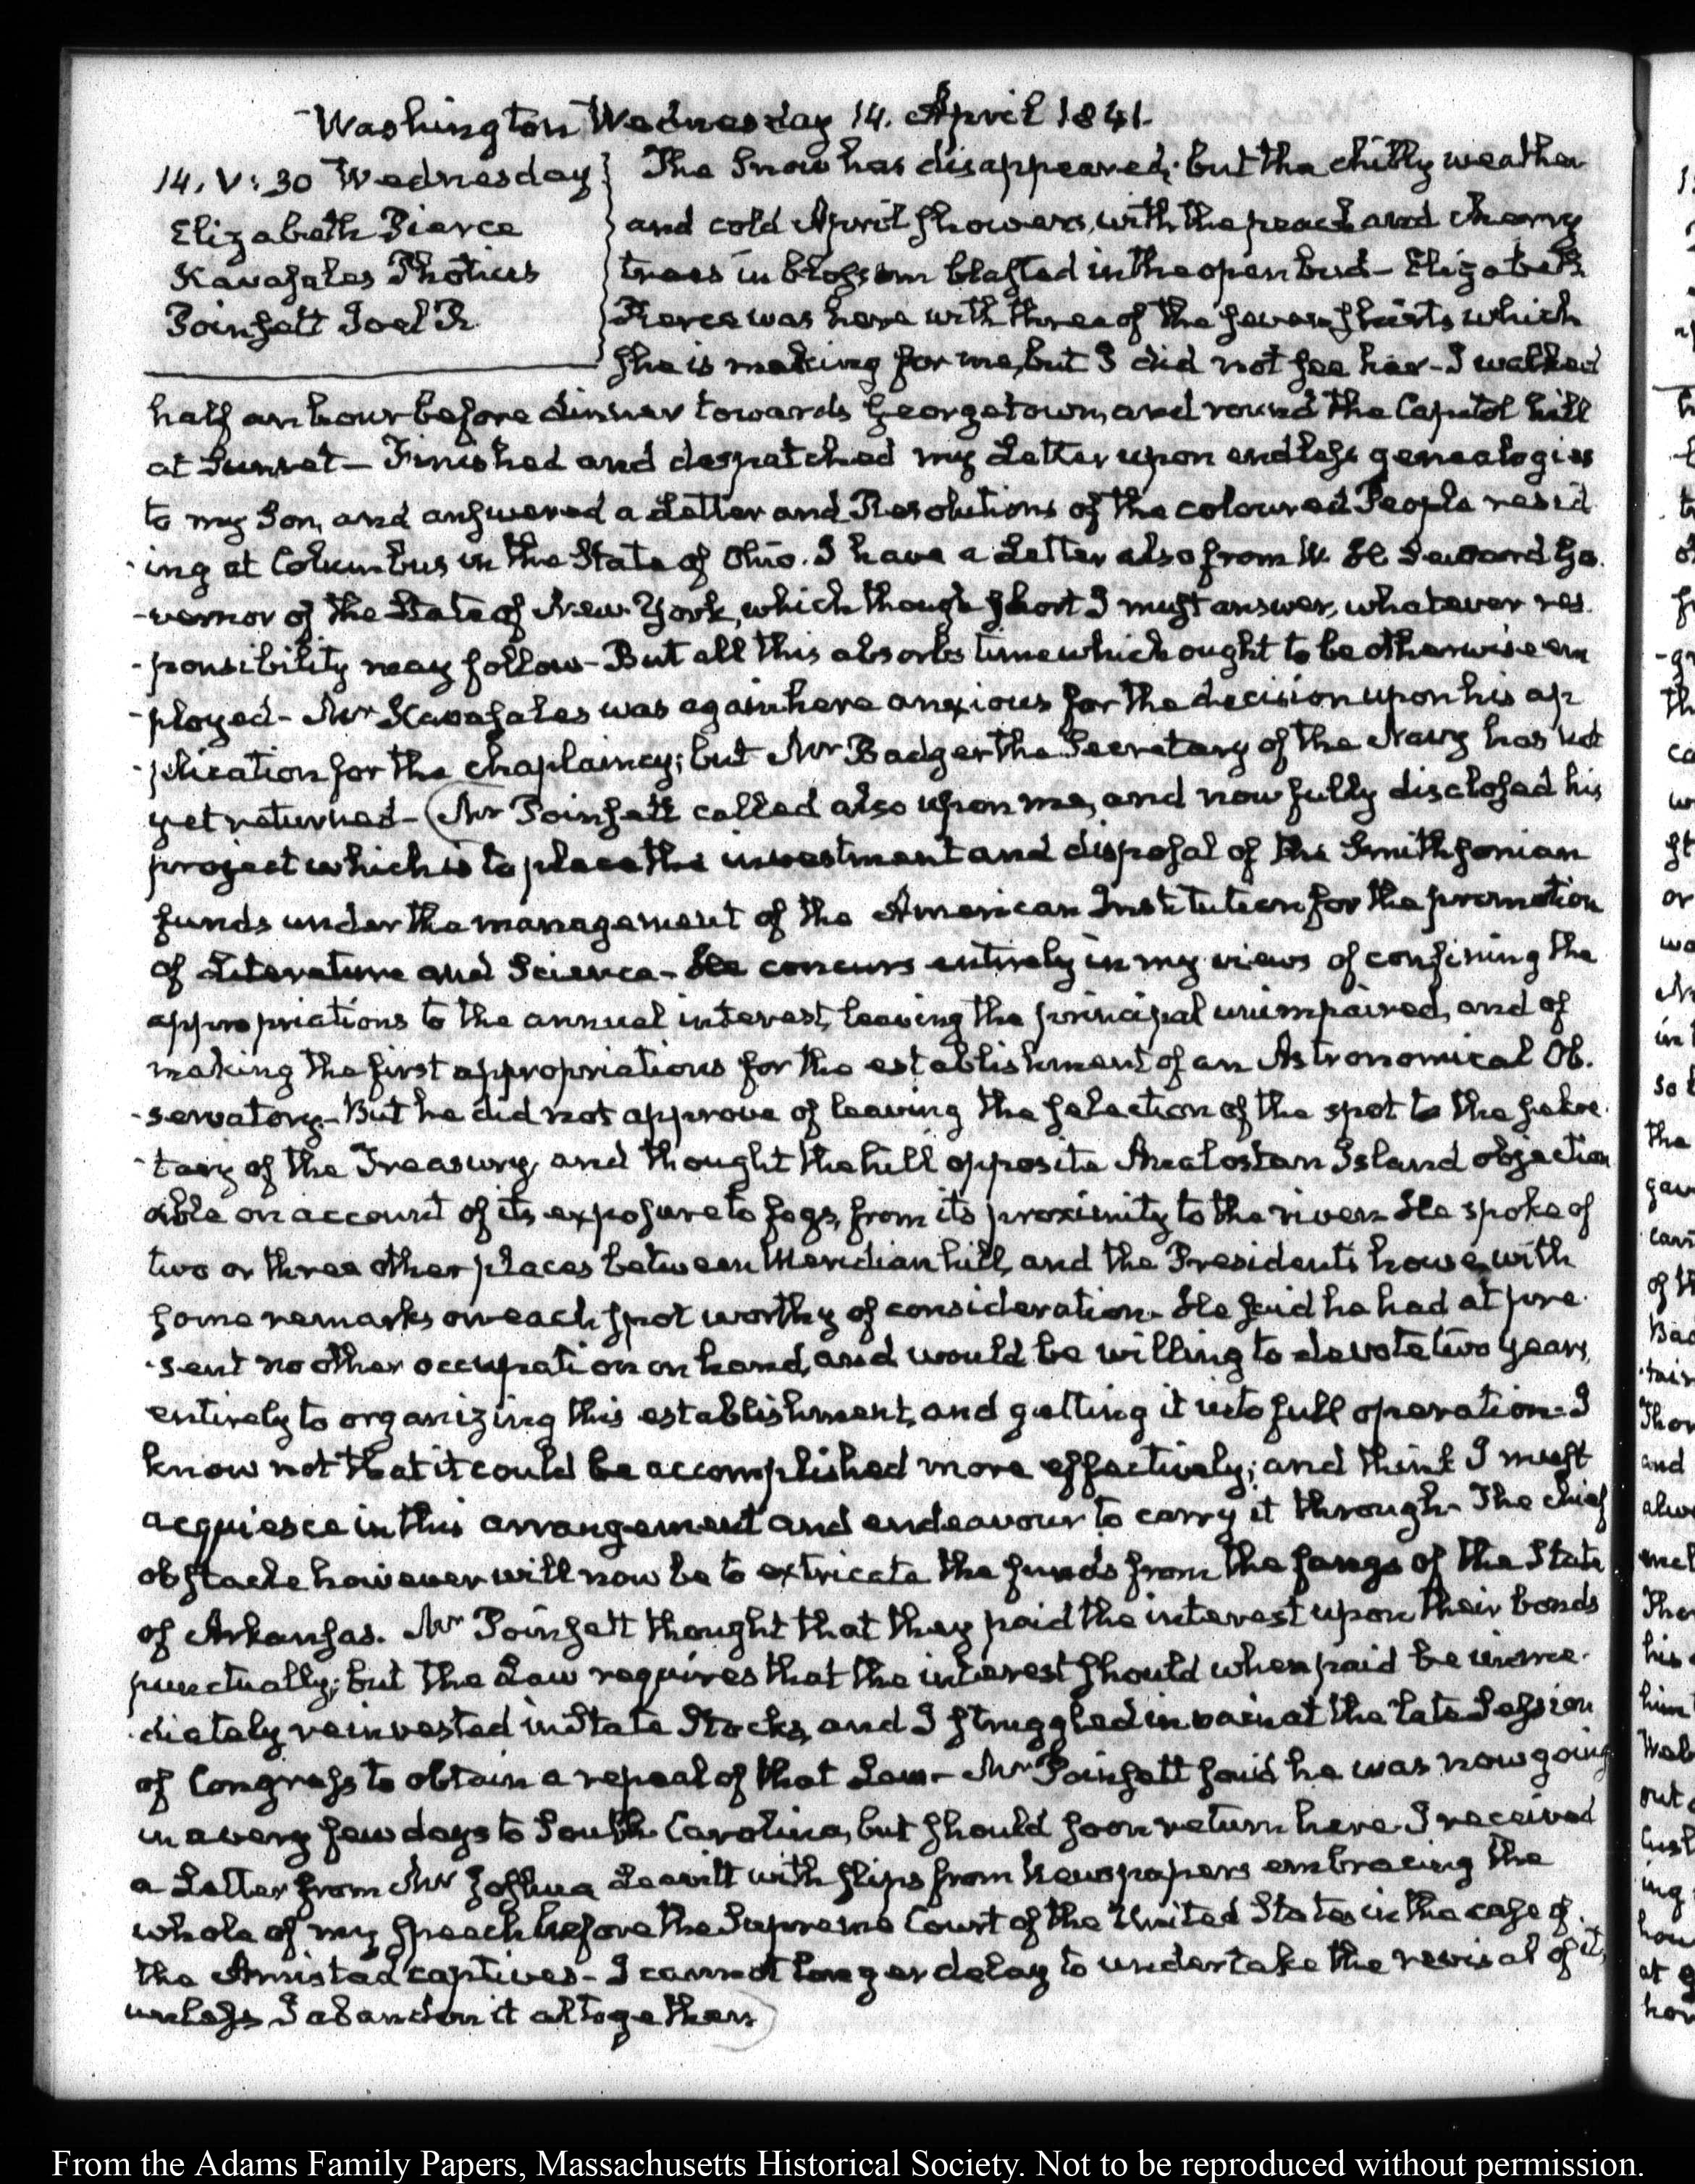 Washington Wednesday 14. April 1841.
14. V:30 Wednesday
Elizabeth Pierce
Kavasales Photius
Poinsett Joel R
The Snow has disappeared; but the chilly weather
and cold April showers, with the peach and cherry
trees in blossom blasted in the open bud – Elizabeth
Pierce was here with three of the seven shirts which
she is making for me, but I did not see her – I walked
half an hour before dinner towards Georgetown, and round the Capitol hill
at Sunset – Finished and despatched my Letter upon endless genealogies
to my Son, and answered a Letter and Resolutions of the coloured People resid
-ing at Columbus in the State of Ohio. I have a Letter also from W. H. Seward Go-
-vernor of the State of New-York, which though short I must answer, whatever res-
-ponsibility may follow – But all this absorbs time which ought to be otherwise em
-ployed – Mr Kavasales was again here anxious for the decision upon his ap
-plication for the chaplaincy; but Mr Badger the Secretary of the Navy has not
yet returned – (Mr Poinsett called also upon me, and now fully disclosed his
project which is to place the investment and disposal of the Smithsonian
funds under the management of the American Institution for the promotion
of Literature and Science – He concurs entirely in my views of confining the
appropriations to the annual interest, leaving the principal unimpaired, and of
making the first appropriations for the establishment of an Astronomical Ob-
-servatory – But he did not approve of leaving the selection of the spot to the Secre-
-tary of the Treasury, and thought the hill opposite Analostan Island objection
able on account of its exposure to fogs, from its proximity to the river. He spoke of
two or three other places between Meridian hill, and the President's house, with
some remarks on each spot worthy of consideration. He said he had at pre-
-sent no other occupation on hand, and would be willing to devote two years,
entirely to organizing this establishment, and getting it into full operation – I
know not that it could be accomplished more effectively; and think I must
acquiesce in this arrangement and endeavour to carry it through – The chief
obstacle however will now be to extricate the funds from the fangs of the State
of Arkansas. Mr Poinsett thought that they paid the interest upon their bonds
punctually; but the Law requires that the interest should when paid be imme-
-diately reinvested in State Stocks, and I struggled in vain at the late Session
of Congress to obtain a repeal of that Law – Mr Poinsett said he was now going
in a very few days to South Carolina, but should soon return here. I received
a Letter from Mr Joshua Leavitt with slips from Newspapers embracing the
whole of my speech before the Supreme Court of the United States in the case of
the Amistad captives – I cannot longer delay to undertake the revisal of it,
unless I abandon it altogether)
From the Adams Family Papers, Massachusetts Historical Society. Not to be reproduced without permission.